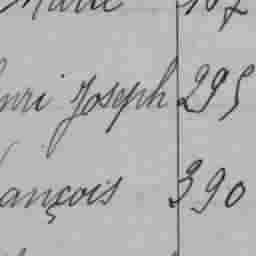 Marie 107
nri Joseph 295
ançois 390